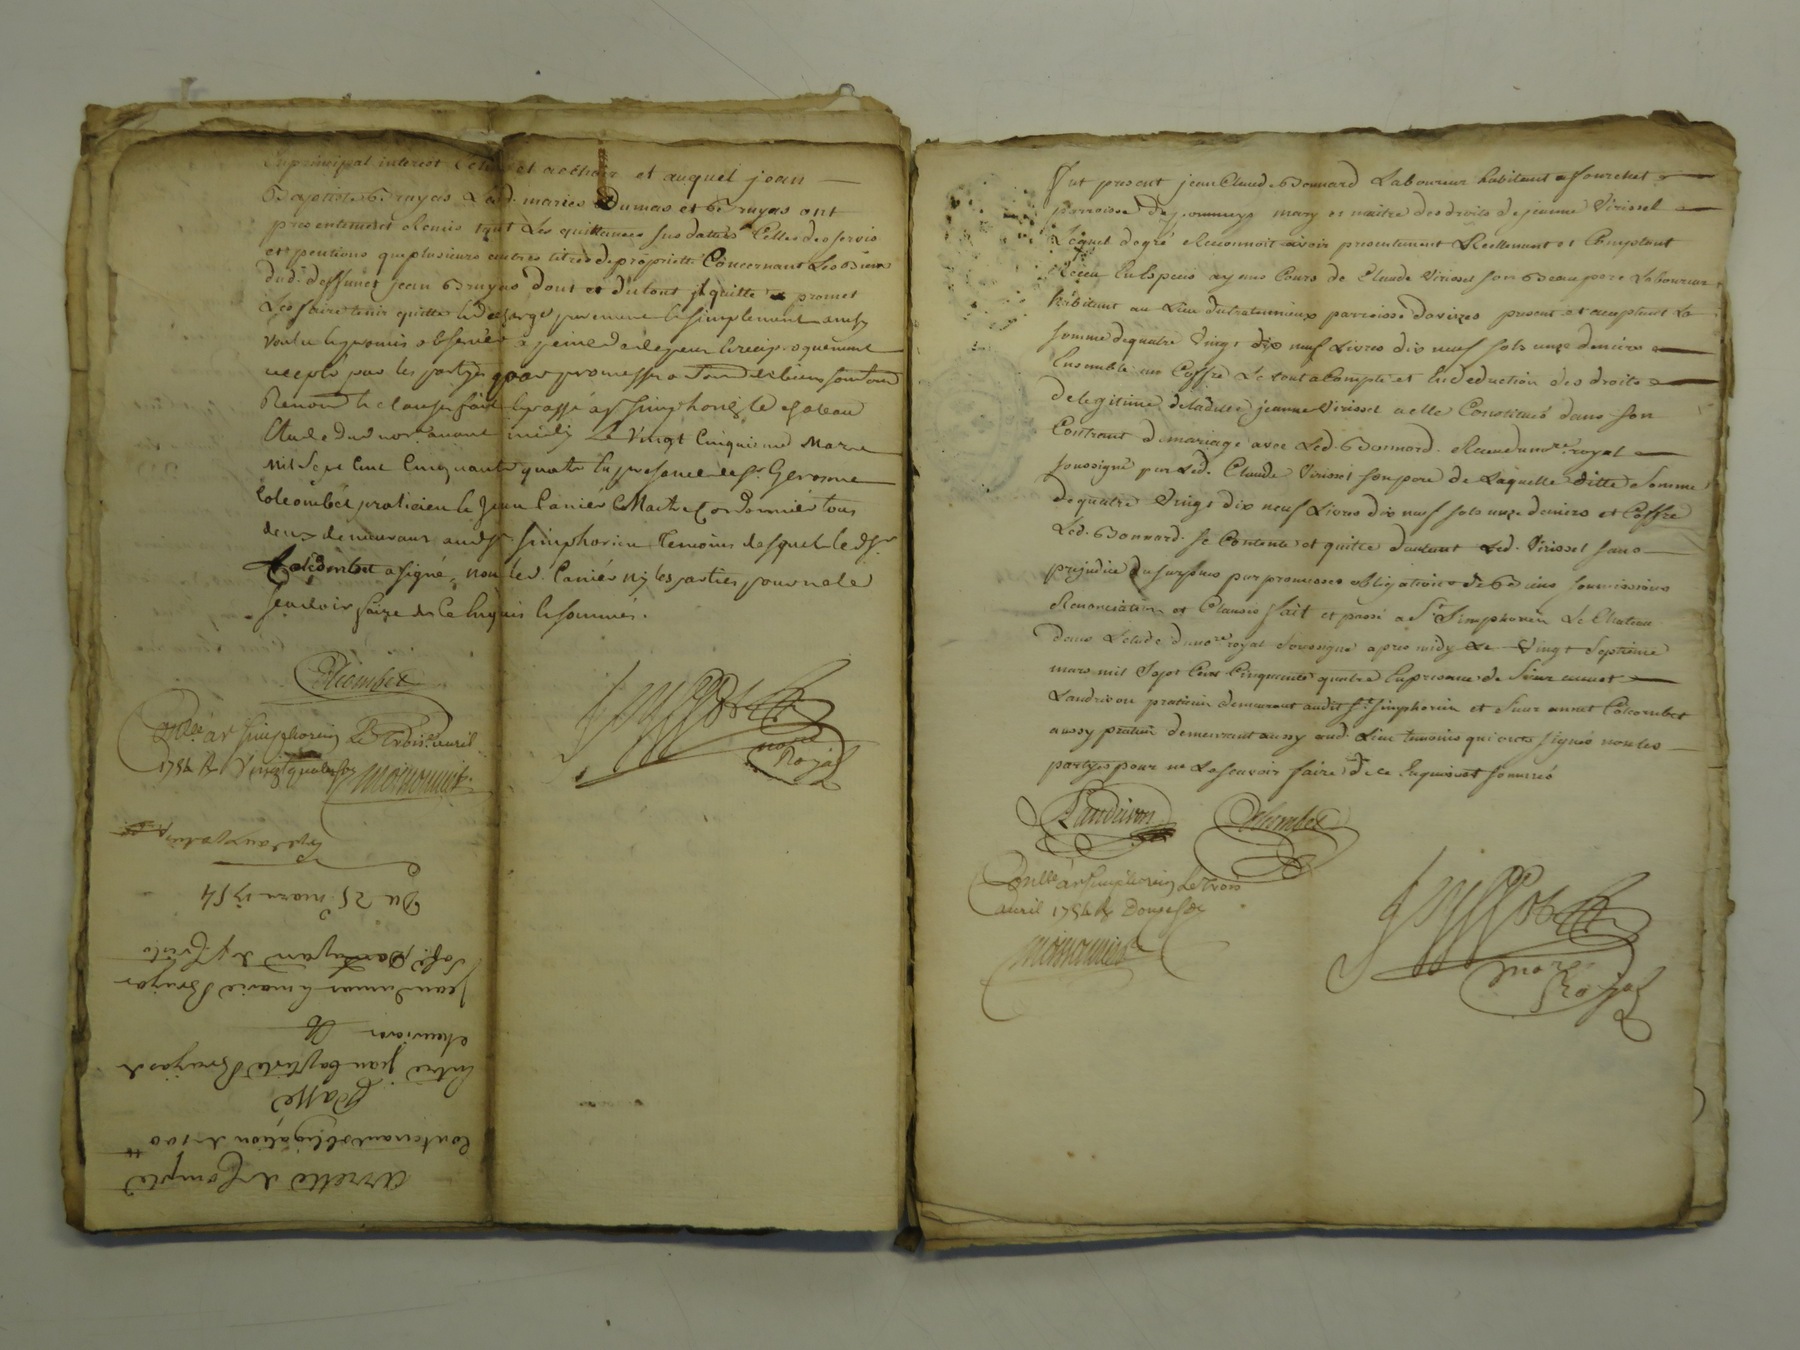 en principal interest et aethoir et auquel jean
Baptiste Bruyas Lesd. mariés Dumas et Bruyas ont
presentement Remis tant Les quittances susdattées Celles des servis
et pentions que plusieurs autres titres de proprietté Concernant Les Biens
dud. deffunct jean Bruyas Dont et du tout il quitte et promet
Les faire tenir quitte purement & simplement ainsy
voulu & promis observer à peine de
accepté par les partyes par promesse
Renon. & clauses fait & passé à st Simphorien le chateau
Etude dud. nor. avant midy Le Vingt Cinquieme Mars
Mil Sept Cent Cinquante quatre En presence de sr. Gerosme
Colcombet praticien & Jean Canier Maitre Cordonnier tous
deux demeurans aud. st Simphorien temoins desquels led. sr.
Colcombet a signé, non led. Canier ny les parties pour ne le
scavoir faire de Ce Enquis & sommés.
Colcombet
nore
Royal
Con.lle à st Simphorien Le Trois. avril
1754 R. Vingt quatre sols
Moissonnier
Du 25. mars 1754
Jean Dumas & marie Bruyas
Entre jean baptiste Bruyas &
Passé
Contenant obligation de 100 ₶
Arretté de Compte
Fut present jean Claude Bonnard Laboureur habitant a fourchet
parroisse de pommeys mary et maitre des droits de jeanne Virissel
Lequel de gré Reconnoit avoir presentement Reellement et Comptant
Receu En Especes ayans Cours de Claude Virissel son Beau pere Laboureur
habitant au Lieu du parroisse davizes present et acceptant La
somme de quatre Vingt dix neuf Livres dix neuf sols unze deniers
Ensemble un Coffre Le tout a Compte et En deduction des droits
de legitime de ladite jeanne Virissel a elle Constitués dans son
Contract de mariage avec Led. Bonnard. Receu du nore. royal
soussigné par Led. Claude Virissel son pere de Laquelle ditte somme
de quatre Vingt dix neuf Livres dix neuf sols unze deniers et Coffre
Led. Bonnard. se Contente et quitte d'autant Led. Virissel sans
prejudice du surplus par promesses obligations de Biens soumissions
Renonciations et Clauses fait et passé a St. Simphorien Le Chateau
dans Letude du nore. royal soussigné apres midy Le Vingt Septieme
mars mil Sept Cent Cinquante quatre En presence de Sieur annet
Landrivon praticien demeurant audit St. simphorien et Sieur annet Colcombet
aussy praticien demeurant aussy aud. Lieu temoins qui ont signés non les
partyes pour ne Le scavoir faire de ce Enquis et sommés
Landrivon Colcombet
Con.lle à st Simphorien Le Trois
avril 1754 R. Douze sols
Moissonnier
nore
Royal